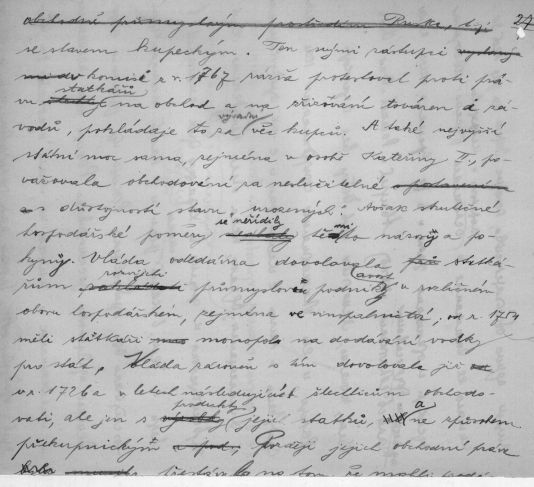 obchodně průmyslovým prostředím Ruska, t. j. 27
se stavem kupeckým. Ten svými zástupci
do komise z r. 1767 rázně protestoval proti prá-
vu statkářů na obchod a na zřizování továren a zá-
vodů, pokládaje to za výhradní věc kupců. A také nejvyšší
státní moc sama, zejména v osobě Kateřiny II., po-
važovala obchodování za neslučitelné
s důstojností stavu „urozených“. Avšak skutečné
hospodářské poměry se neřídily těmito názory a po-
kyny. Vláda odedávna dovolovala statká-
řům rozvíjeti průmyslové podniky v rozličném
oboru hospodářském, zejména ve vinopalnictví; od r. 1754
měli statkáři monopol na dodávání vodky
pro stát. Vláda zároveň s tím dovolovala již
v r. 1726 a v letech následujících šlechticům obchodo-
vati, ale jen s produkty jejich statků, a ne způsobem
překupnickým. Později jejich obchodní práva
na tom, že mohli